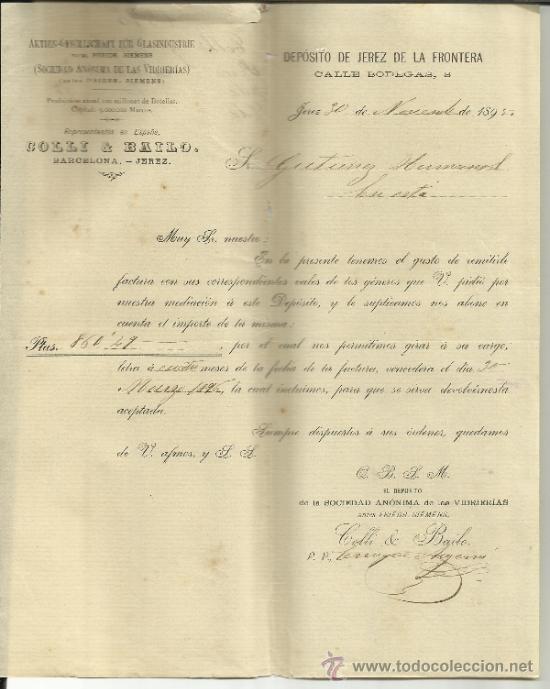 AKTIEN-GESELLSCHAFT FÜR GLASINDUSTRIE
VORM. FRIEDR. SIEMENS
(SOCIEDAD ANÓNIMA DE LAS VIDRIERÍAS)
(ANTES FRIEDR. SIEMENS)
Produccion anual cien millones de Botellas.
Capital: 9.000.000 Marcos.
Representantes en España,
COLLI & BAILO.
BARCELONA, — JEREZ.
DEPÓSITO DE JEREZ DE LA FRONTERA
CALLE BODEGAS, 8
Jerez 30 de Noviembre de 1895
S. Gutierrez Hermanos
En esta
Muy Sr. nuestro:
En la presente tenemos el gusto de remitirle
factura con sus correspondientes vales de los géneros que V. pidió por
nuestra mediación à este Depósito, y le suplicamos nos abone en
cuenta el importe de la misma:
Ptas. 860'48 por el cual nos permitimos girar à su cargo,
letra à cuatro meses de la fecha de la factura, vencedera el dia 30
Marzo 1896 la cual incluimos, para que se sirva devolvernosta
aceptada.
Siempre dispuestos à sus órdenes, quedamos
de V. afmos, y S. S.
Q. B. S. M.
EL DEPÓSITO
de la SOCIEDAD ANÓNIMA de las VIDRIERÍAS
ANTES FRIEDR. SIEMENS,
Colli & Bailo.
P. P.,
todocoleccion
www.todocoleccion.net